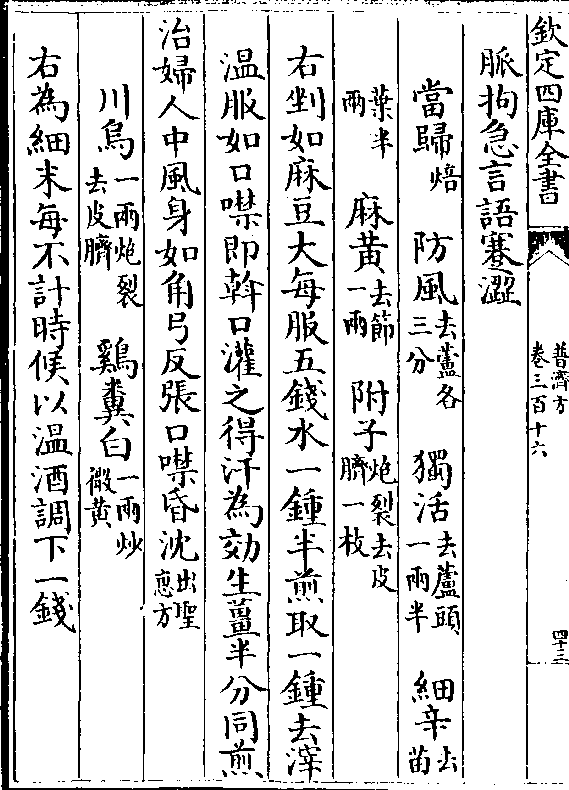 欽定四庫全書 普濟方 卷三百十六 四十三
脈拘急言語蹇澀
當歸焙 防風去蘆各三分 獨活去蘆頭一兩半 細辛去苗
葉半兩 麻黃去節一兩 附子炮裂去皮臍一枚
右剉如麻豆大每服五錢水一鍾半煎取一鍾去滓
温服如口噤即斡口灌之得汗為効生薑半分同煎
治婦人中風身如角弓反張口噤昏沈出聖惠方
川烏一兩炮裂去皮臍 鷄糞白一兩炒微黄
右為細末每不計時候以温酒調下一錢